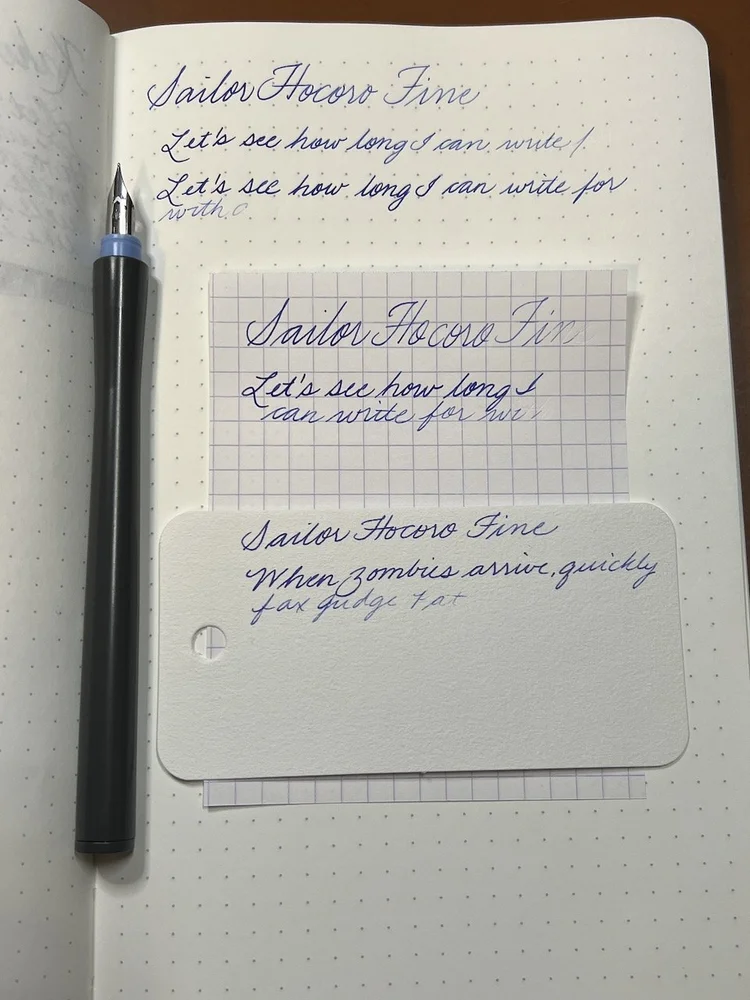 Sailor Hocoro Fine
Let's see how long I can write /
Let's see how long I can write for
with a
Sailor Hocoro Fin
Let's see how long I
can write for wi
Sailor Hocoro Fine
When zombies arrive, quickly
fax judge Pat